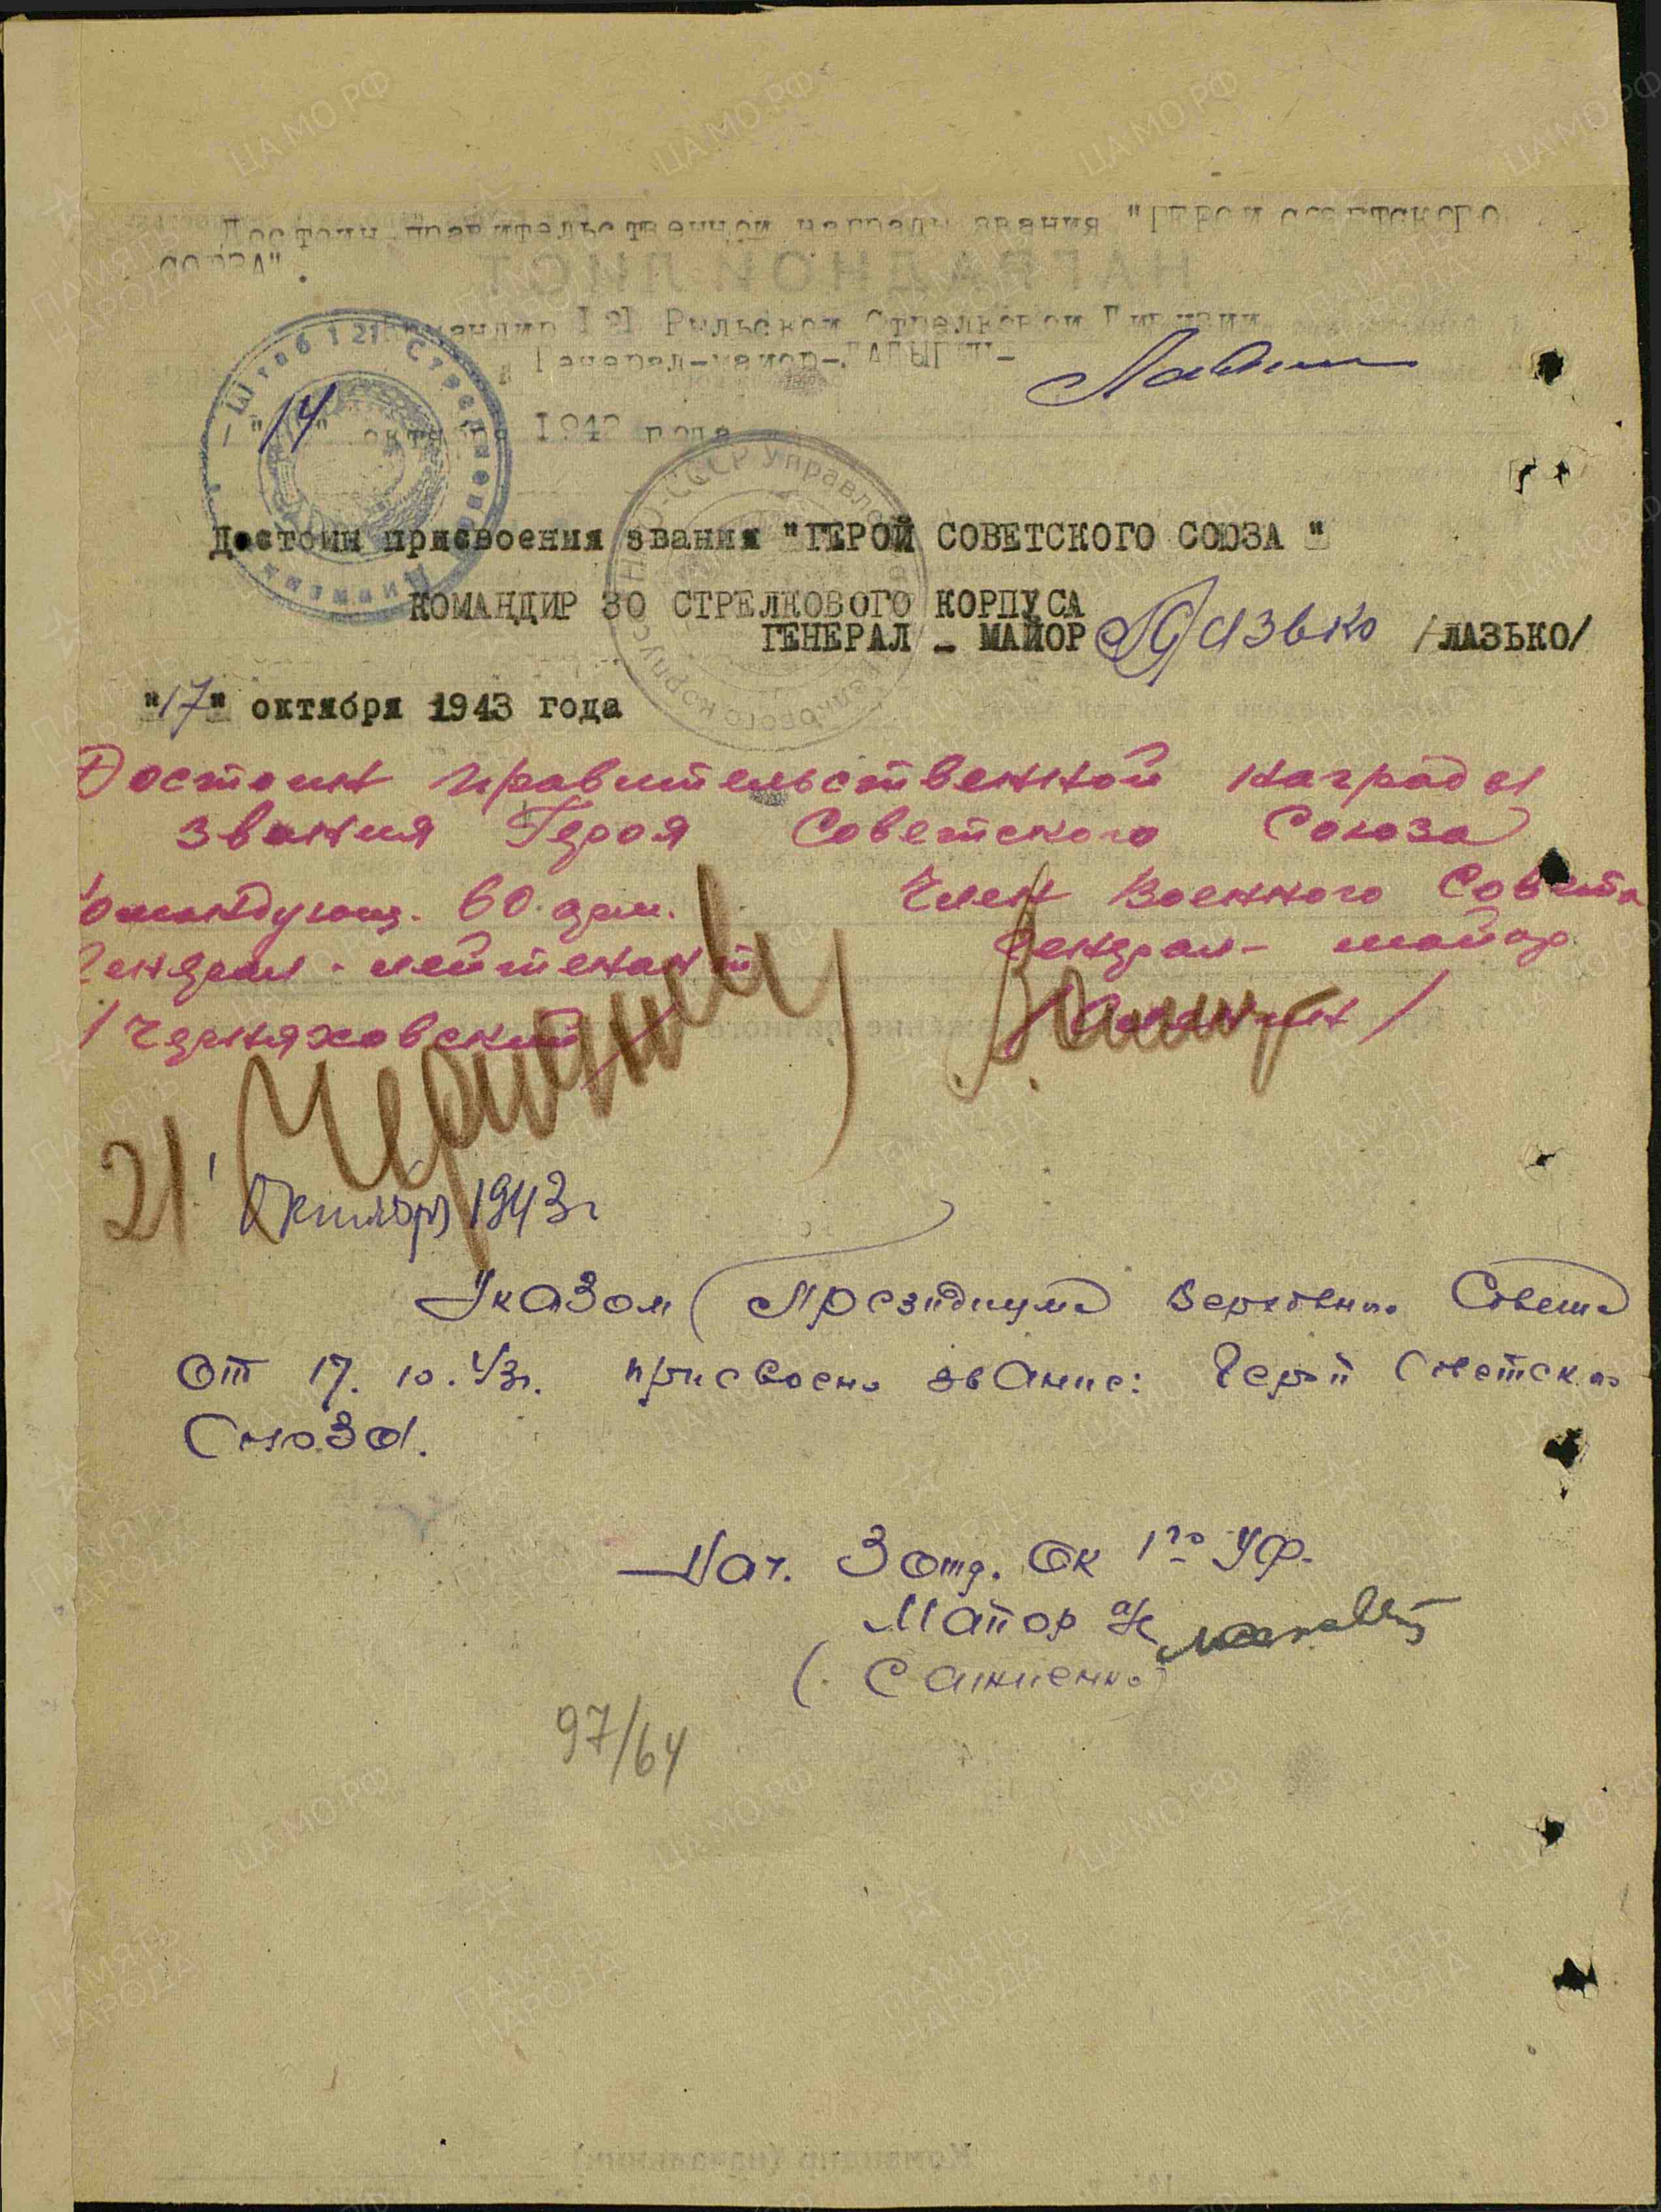 Достоин правительственной награды звания "ГЕРОЙ СОВЕТСКОГО
СОЮЗА".
НАГРАДНОЙ ЛИСТ
Командир 121 Рыльской Стрелковой Дивизии
Генерал-майор-ЛАДЫГИН-
"14" октября 1943 года
Штаб 121 Стрелковой Дивизии
НКО-СССР Управление Стрелкового корпуса
Достоин присвоения звания "ГЕРОЙ СОВЕТСКОГО СОЮЗА"
КОМАНДИР 30 СТРЕЛКОВОГО КОРПУСА
ГЕНЕРАЛ - МАЙОР Лазько /ЛАЗЬКО/
"17" октября 1943 года
Достоин правительственной награды
звания Героя Советского Союза
Командующ. 60 арм. Член Военного Совета
Генерал-лейтенант Генерал-майор
/Черняховский/ /Оленин/
21 Октября 1943 г
Указом Президиума Верховного Совета
от 17.10.43г. присвоено звание: Герой Советского
Союза.
Нач. 3 отд. ОК 1го УФ.
Майор а/с
97/64
Командир (начальник)
ЦАМО РФ
ПАМЯТЬ НАРОДА